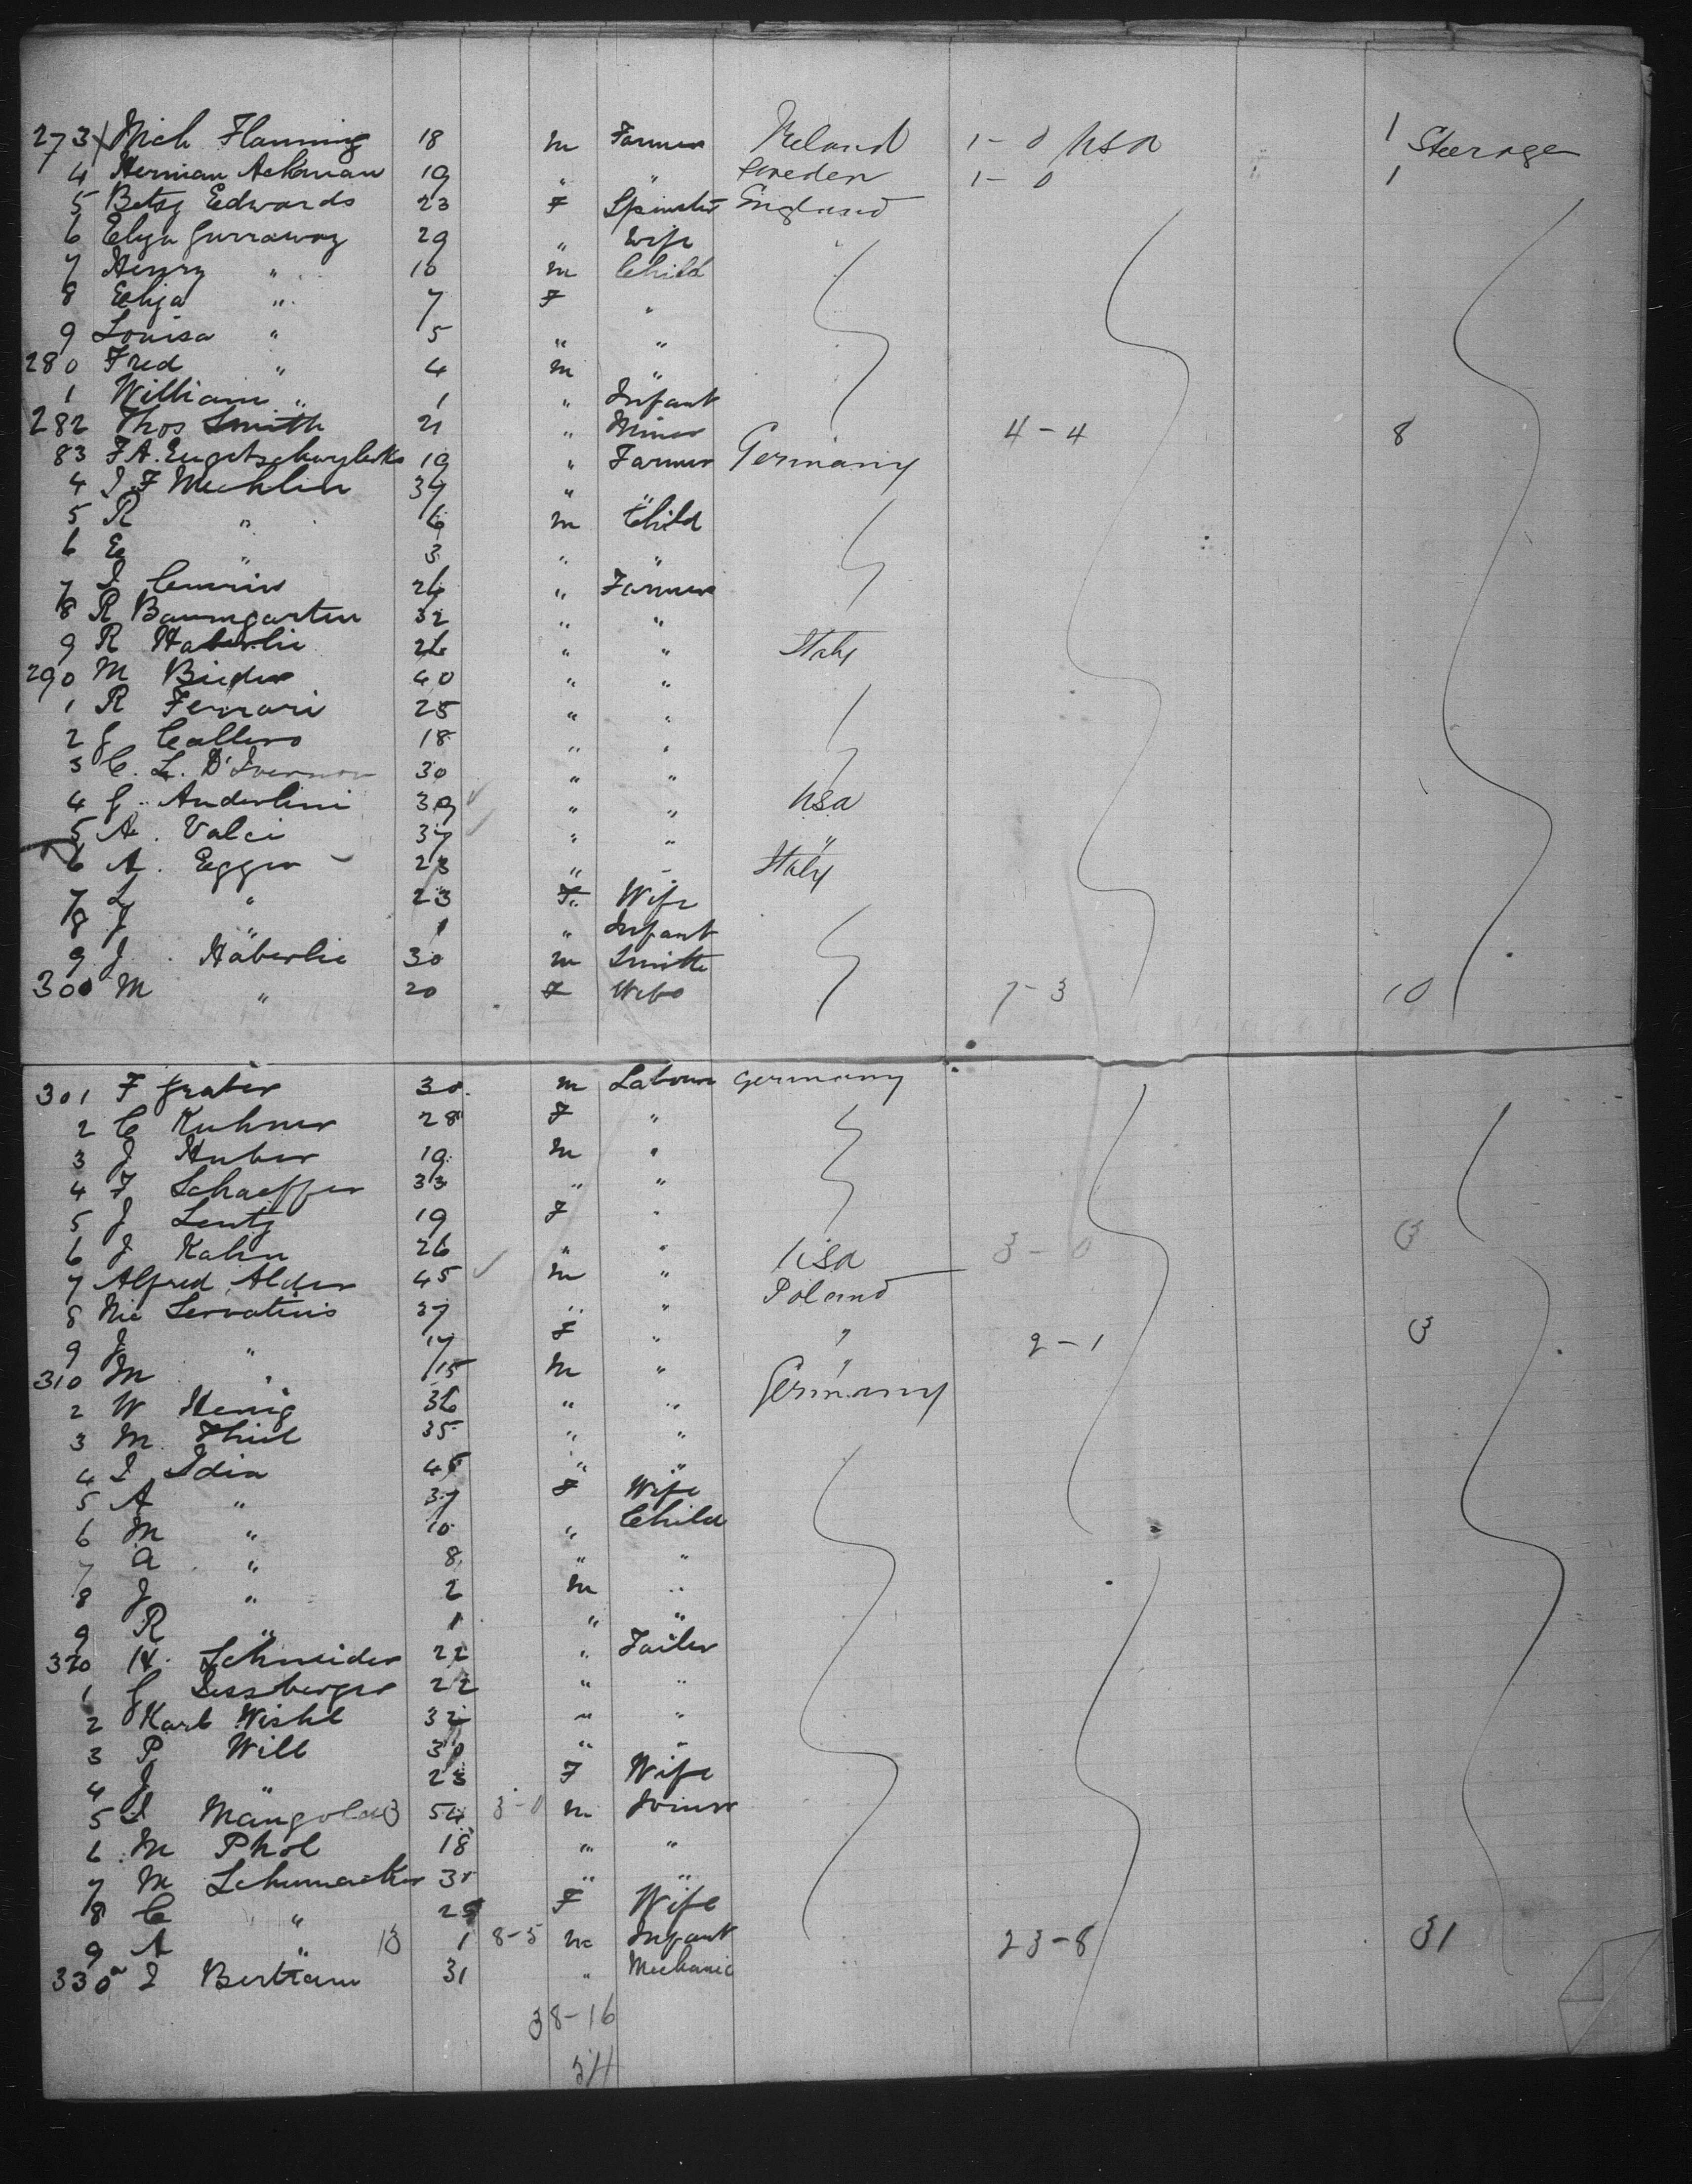 273 Mich Flanning 18 m Farmer Ireland 1-0 USA 1 Steerage
4 Herman Ackman 19 " " Sweden 1-0 1
5 Betsy Edwards 23 F Spinster England
6 Eliza Gurraway 29 " Wife "
7 Henry " 10 m Child
8 Eliza " 7 F "
9 Louisa " 5 " "
280 Fred " 4 m "
1 William " 1 " Infant
282 Thos Smith 21 " Miner 4-4 8
83 F A. 19 " Farmer Germany
4 J F Mechlin 37 " "
5 R " 6 m Child
6 E " 3 " "
7 J 26 " Farmer
8 R Baumgarten 32 " "
9 R Haberlie 26 " " Italy
290 M Bieder 40 " "
1 R Ferrari 25 " "
2 G Callero 18 " "
3 C. L. D'Ivernon 30 " "
4 G. Anderlini 39 " " USA
5 A. Valci 37 " " "
6 A. Egger 23 " " Italy
7 L " 23 F Wife
8 J " 1 " Infant
9 J. Häberlie 30 m Smith
300 M " 20 F Wife 7-3 10
301 F Graber 30 m Labour Germany
2 C Kuhner 28 F "
3 J Huber 19 m "
4 F Schaeffer 33 " "
5 J Lentz 19 F "
6 J Kahn 26 " " 3-0 3
7 Alfred Alder 45 m " USA
8 Nic Servatius 37 " " Poland
9 J " 17 F " " 2-1 3
310 M " 15 m " "
2 W Henig 36 " " Germany
3 M Thiel 35 " "
4 J Idin 45 " "
5 A " 37 F Wife
6 M " 10 " Child
7 a " 8 " "
8 J " 2 m "
9 R " 1 " "
320 H. Schneider 22 " Tailer
1 G Lessberger 22 " "
2 Karl Wishl 32 " "
3 P Will 30 " "
4 J " 23 F Wife
5 J Mangold 3 54 3-0 m Joiner
6 M Phol 18 " "
7 M Schumacker 30 " "
8 C " 25 F Wife
9 A " 13 1 8-5 m Infant 23-8 31
330 J Bertram 31 " Mechanic
38-16
54